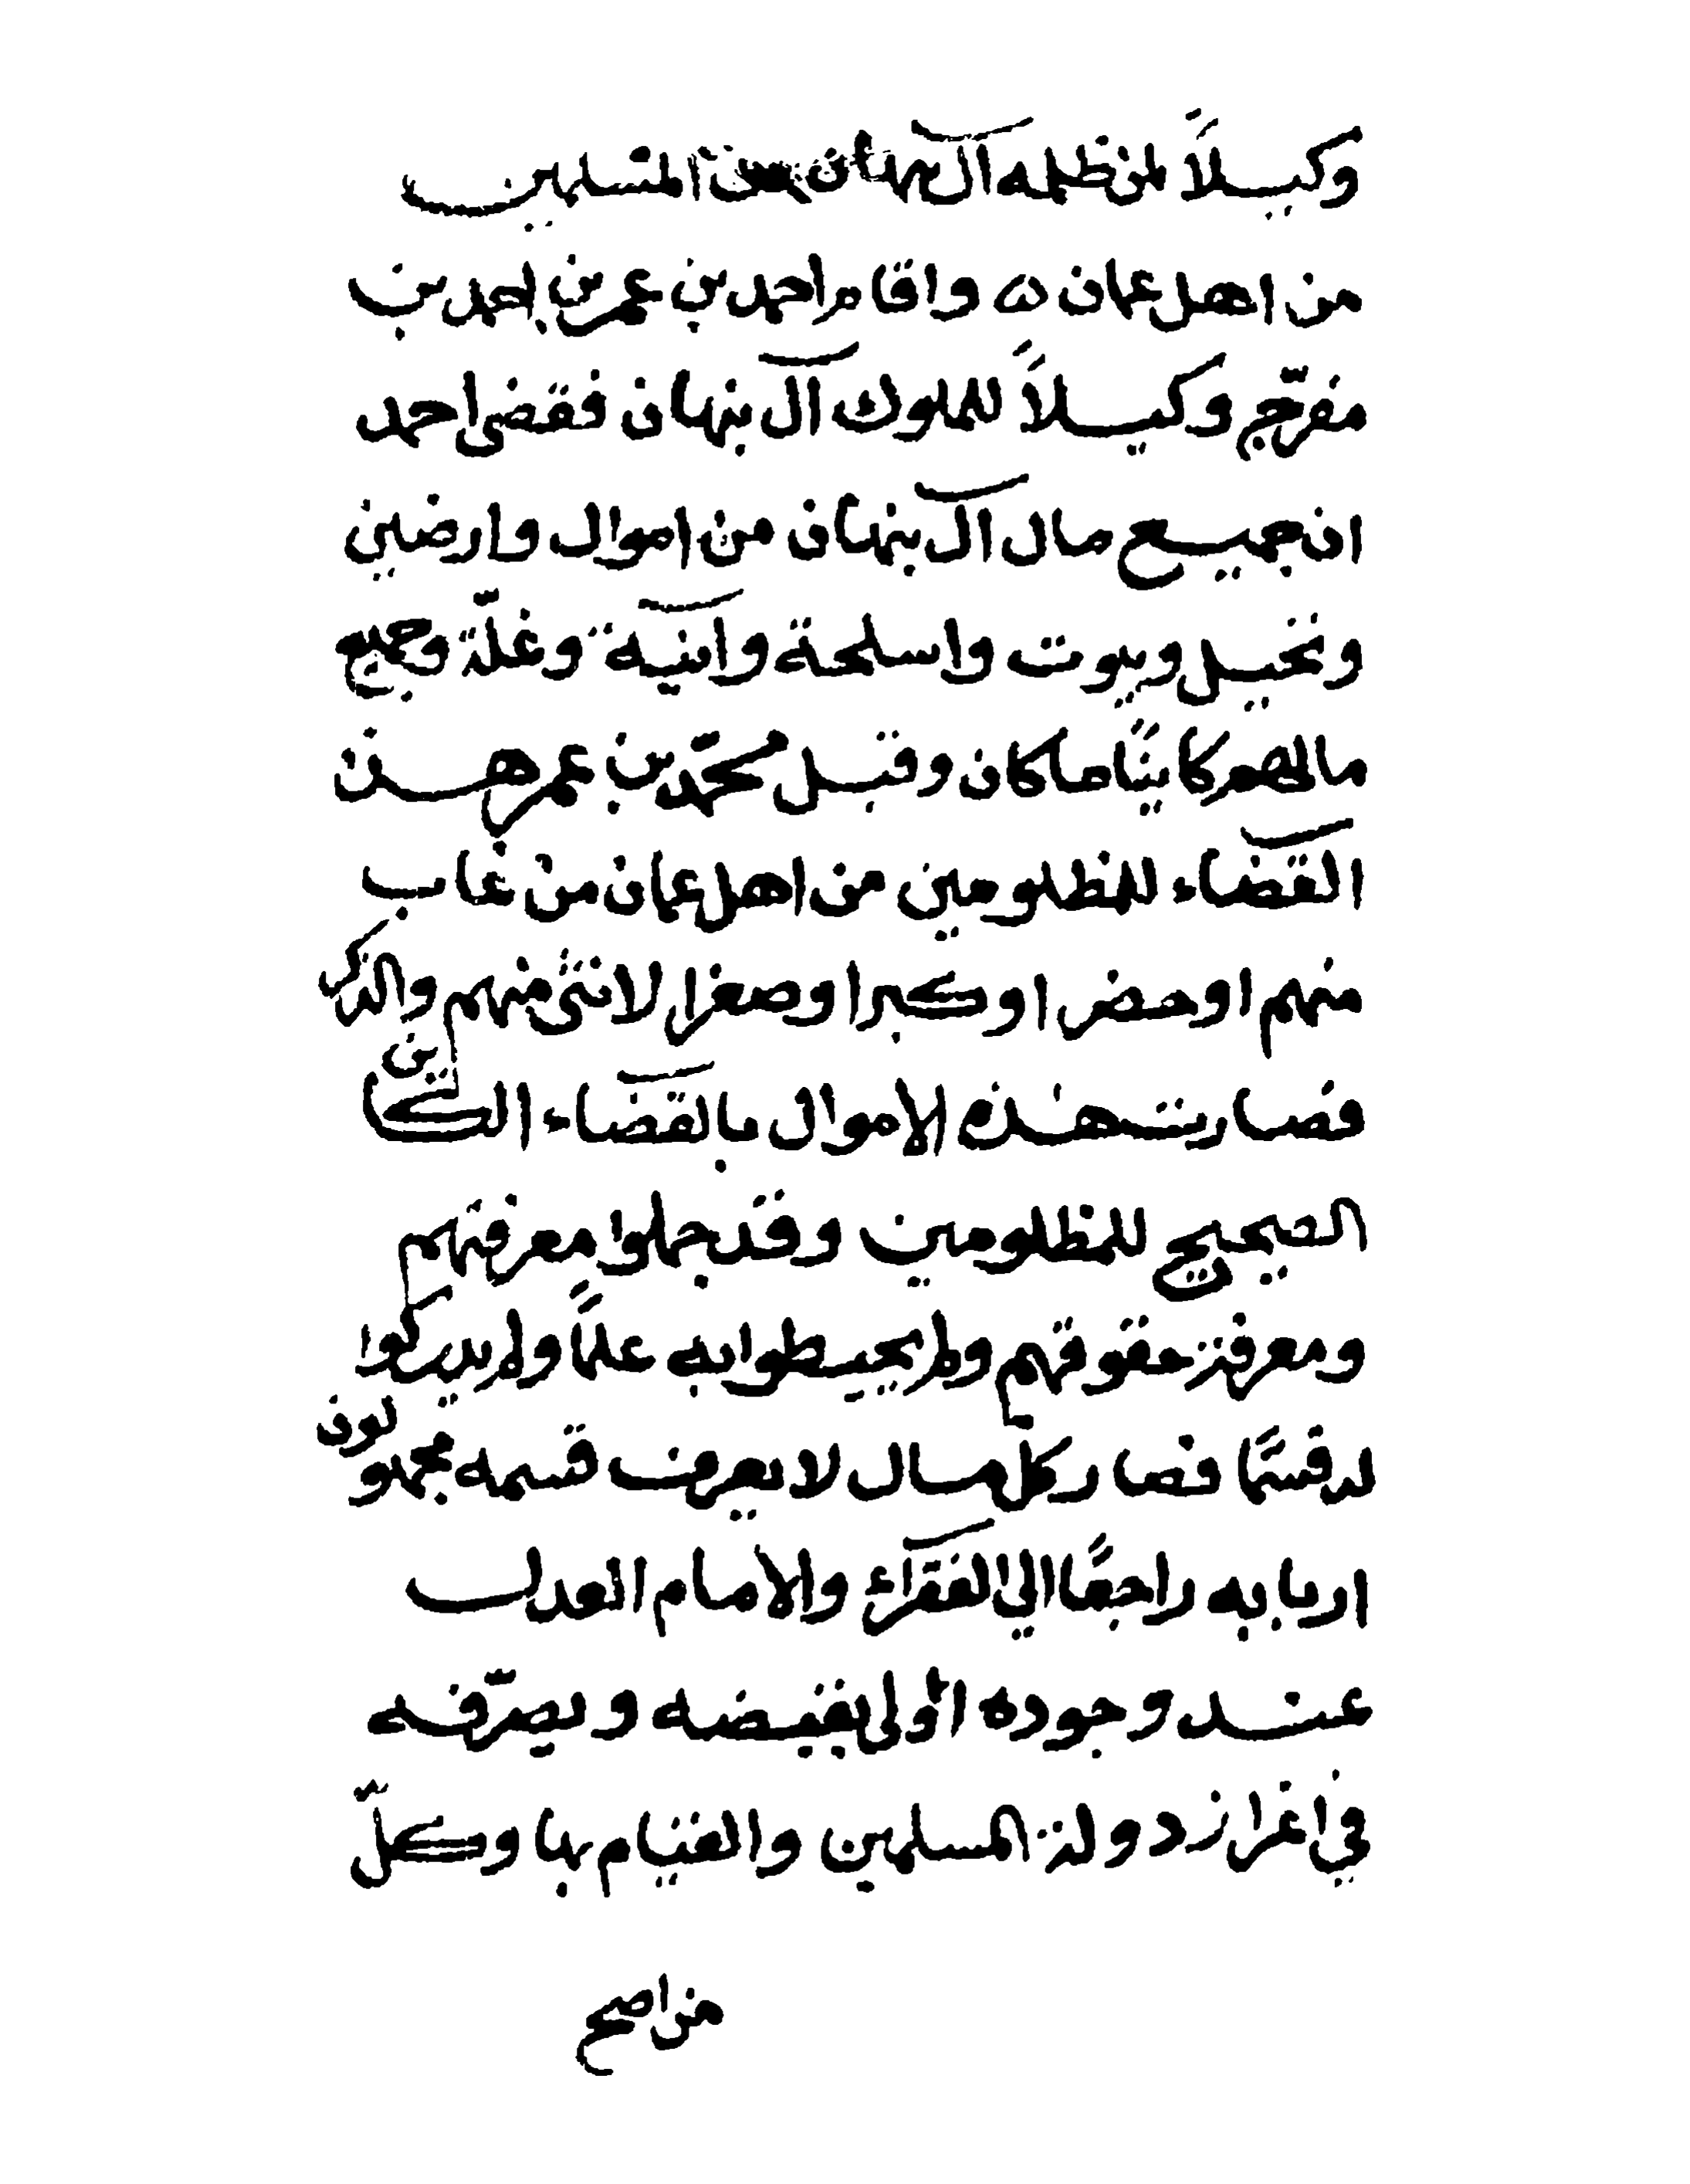 وكيلاً لمن ظلمه آل نبهان من المسلمين
من اهل عمان واقام احمد بن عمر بن احمد بن
مفرّج وكيلاً للملوك آل نبهان فقضى احمد
ان جميع مال آل نبهان من اموال وارضين
ونخيل وبيوت واسلحة وآنية وغلّة وجميع
مالهم كاينًا ما كان وقبل محمّد بن عمر هذا
القضاء للمظلومين من اهل عمان من غاب
منهم او حضر او كبر او صغر الانثى منهم والذكر
فصارت هذه الاموال بالقضاء الكاين
الصحيح للمظلومين وقد جهلوا معرفتهم
ومعرفة حقوقهم ولم يحيطوا به علمًا ولم يدركوا
له قسمًا فصار كل مال لا يعرف قسمه مجهولون
اربابه راجعًا الي الفقرآء والامام العدل
عند وجوده اولى بقبضه ويصرّفه
في اغراز دولة المسلمين والقيام بها وكلّ
من اصح